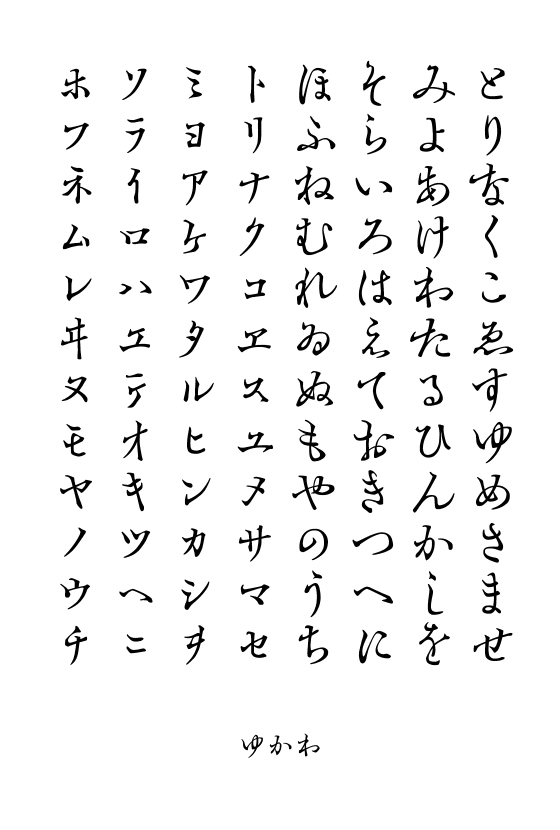 とりなくこゑすゆめさませ
みよあけわたるひんかしを
そらいろはえておきつへに
ほふねむれゐぬもやのうち
トリナクコヱスユメサマセ
ミヨアケワタルヒンカシヲ
ソライロハエテオキツヘニ
ホフネムレヰヌモヤノウチ
ゆかわ